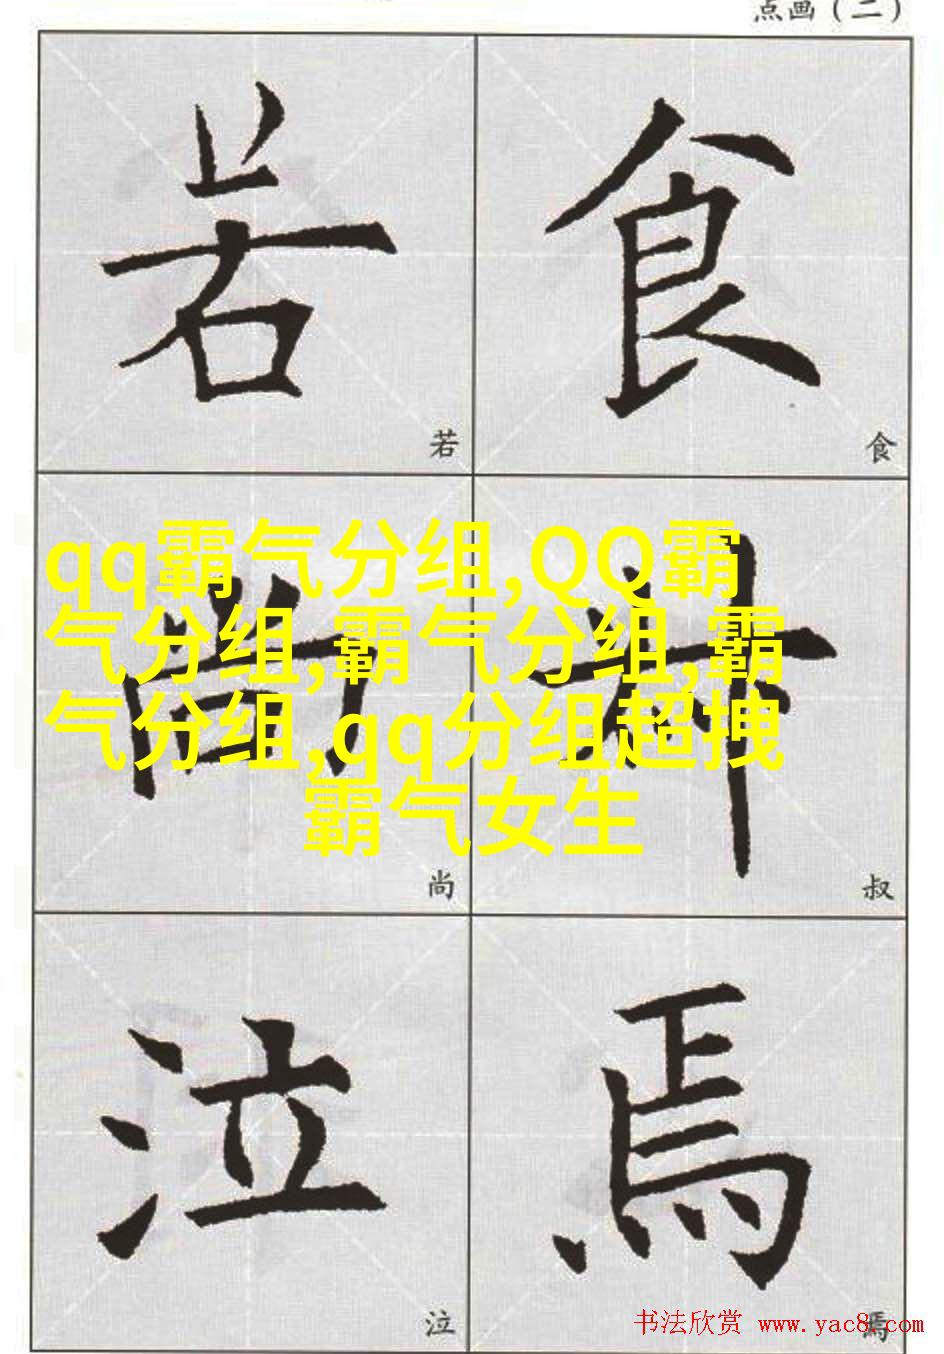 点画（二）
若 食
若 食
qq霸气分组,QQ霸
气分组,霸气分组,霸
气分组,qq分组超拽
霸气女生
尚 叔
尚 叔
泣 焉
泣 焉
书法欣赏 www.yac8.com